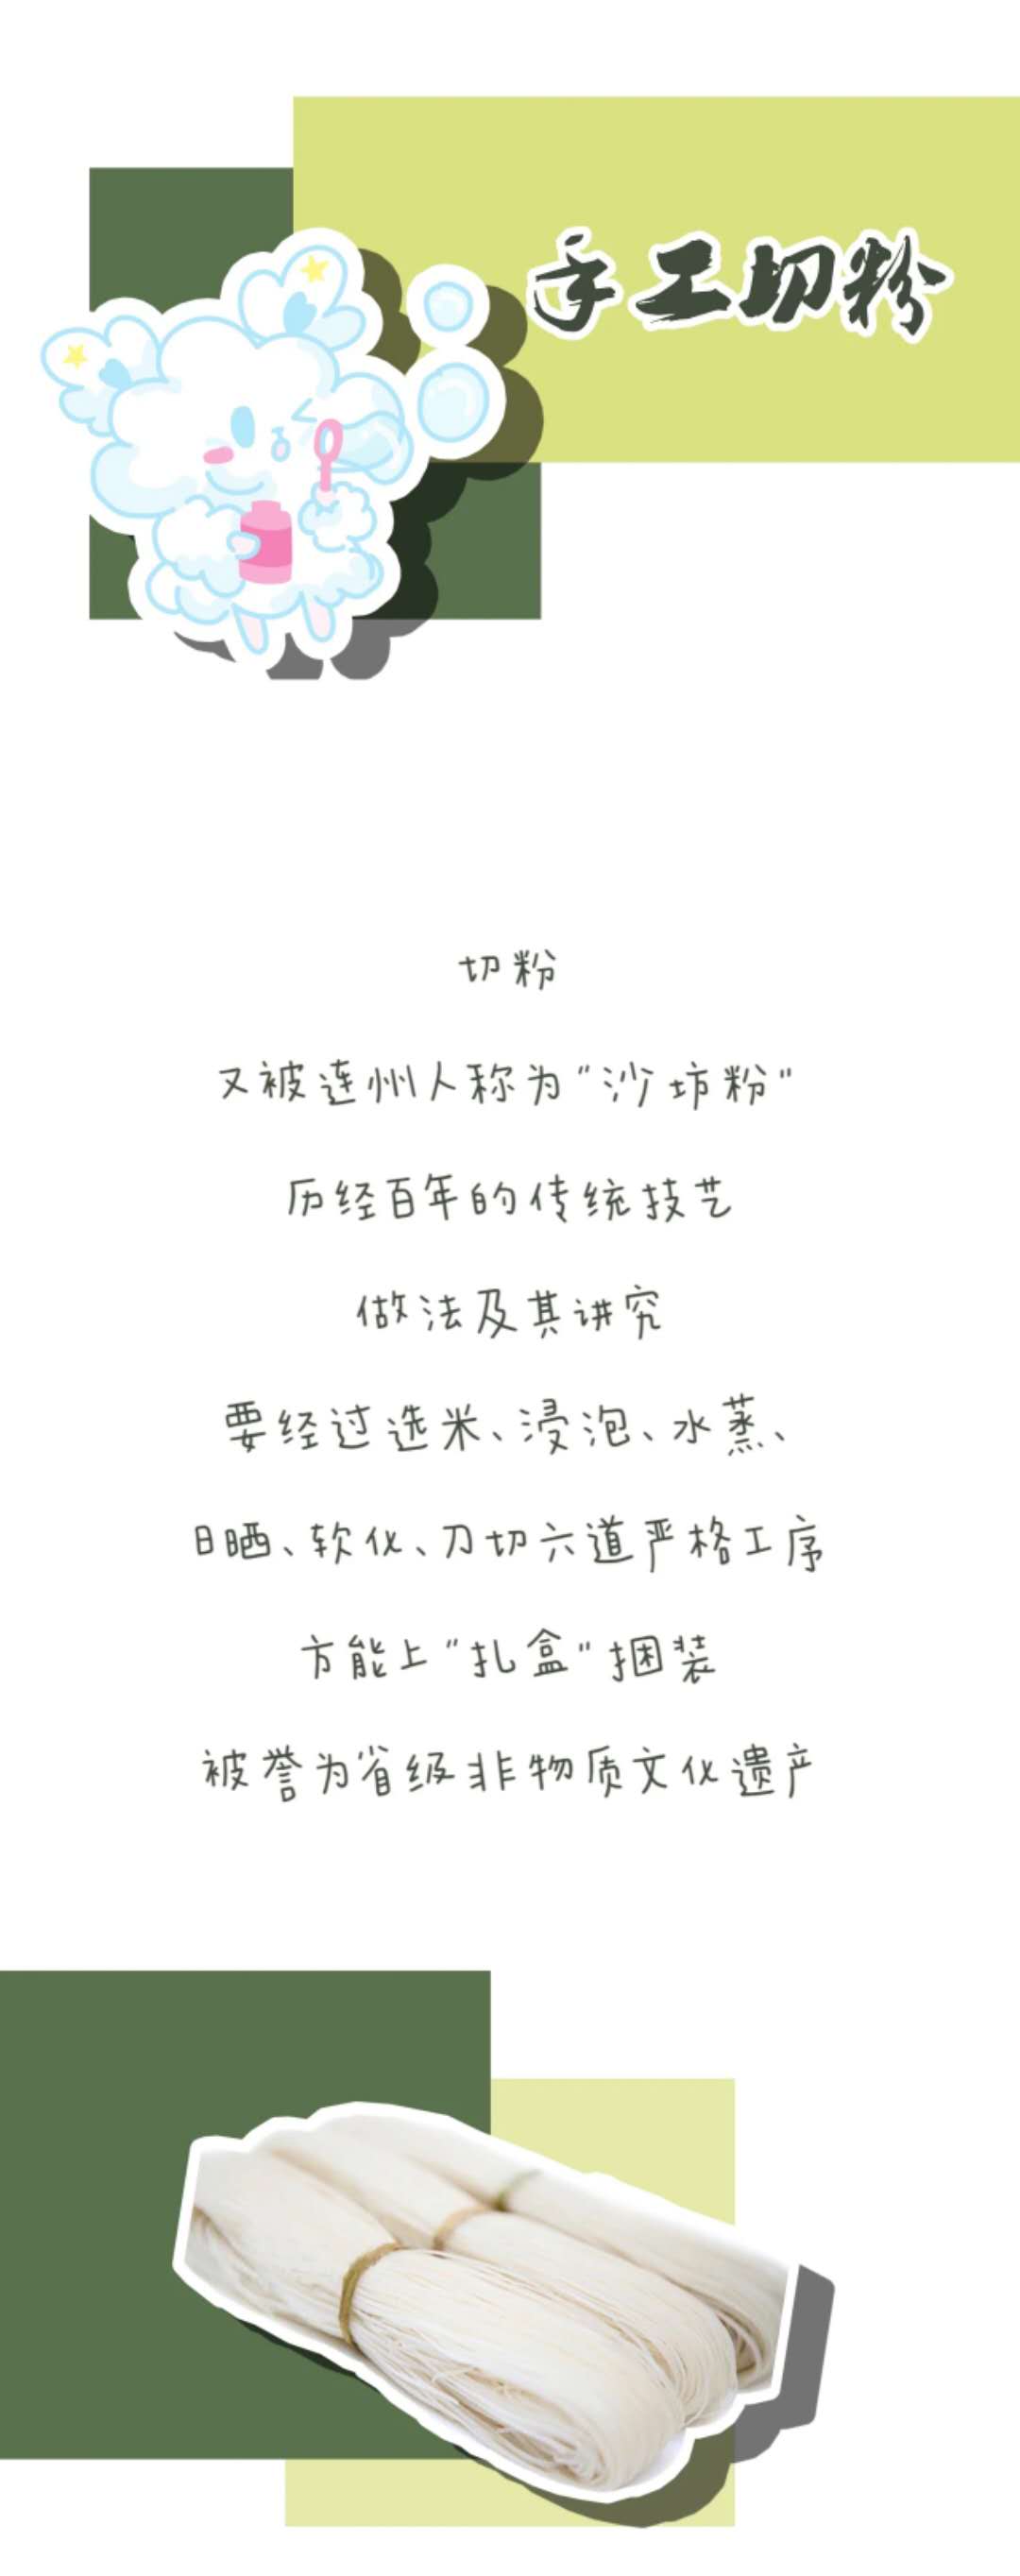 手工切粉
切粉
又被连州人称为“沙坊粉”
历经百年的传统技艺
做法及其讲究
要经过选米、浸泡、水蒸、
日晒、软化、刀切六道严格工序
方能上“扎盒”捆装
被誉为省级非物质文化遗产